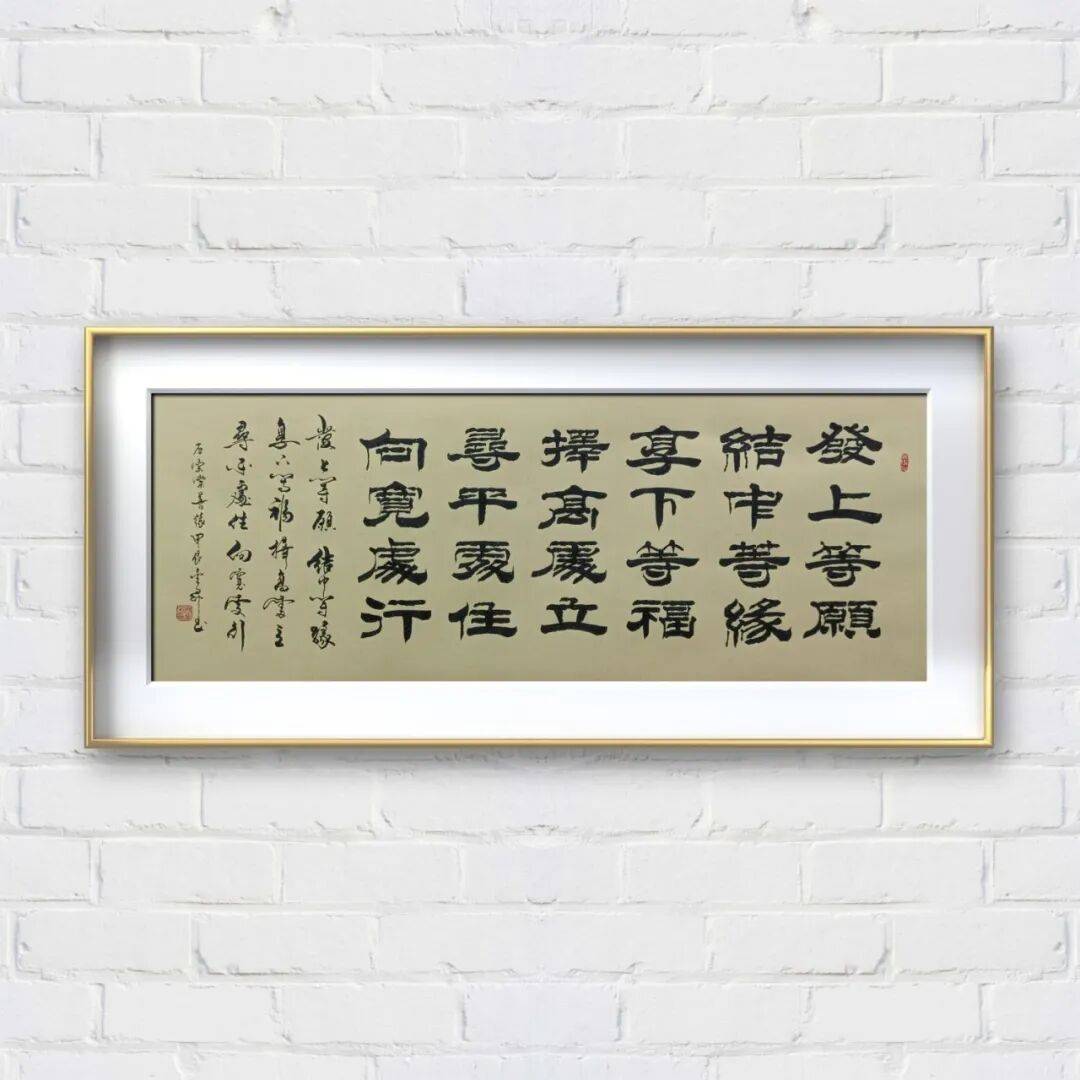 發上等願
結中等緣
享下等福
擇高處立
尋平處住
向寬處行
發上等願結中等緣
享下等福擇高處立
尋平處住向寬處行
左宗棠 甲辰 書